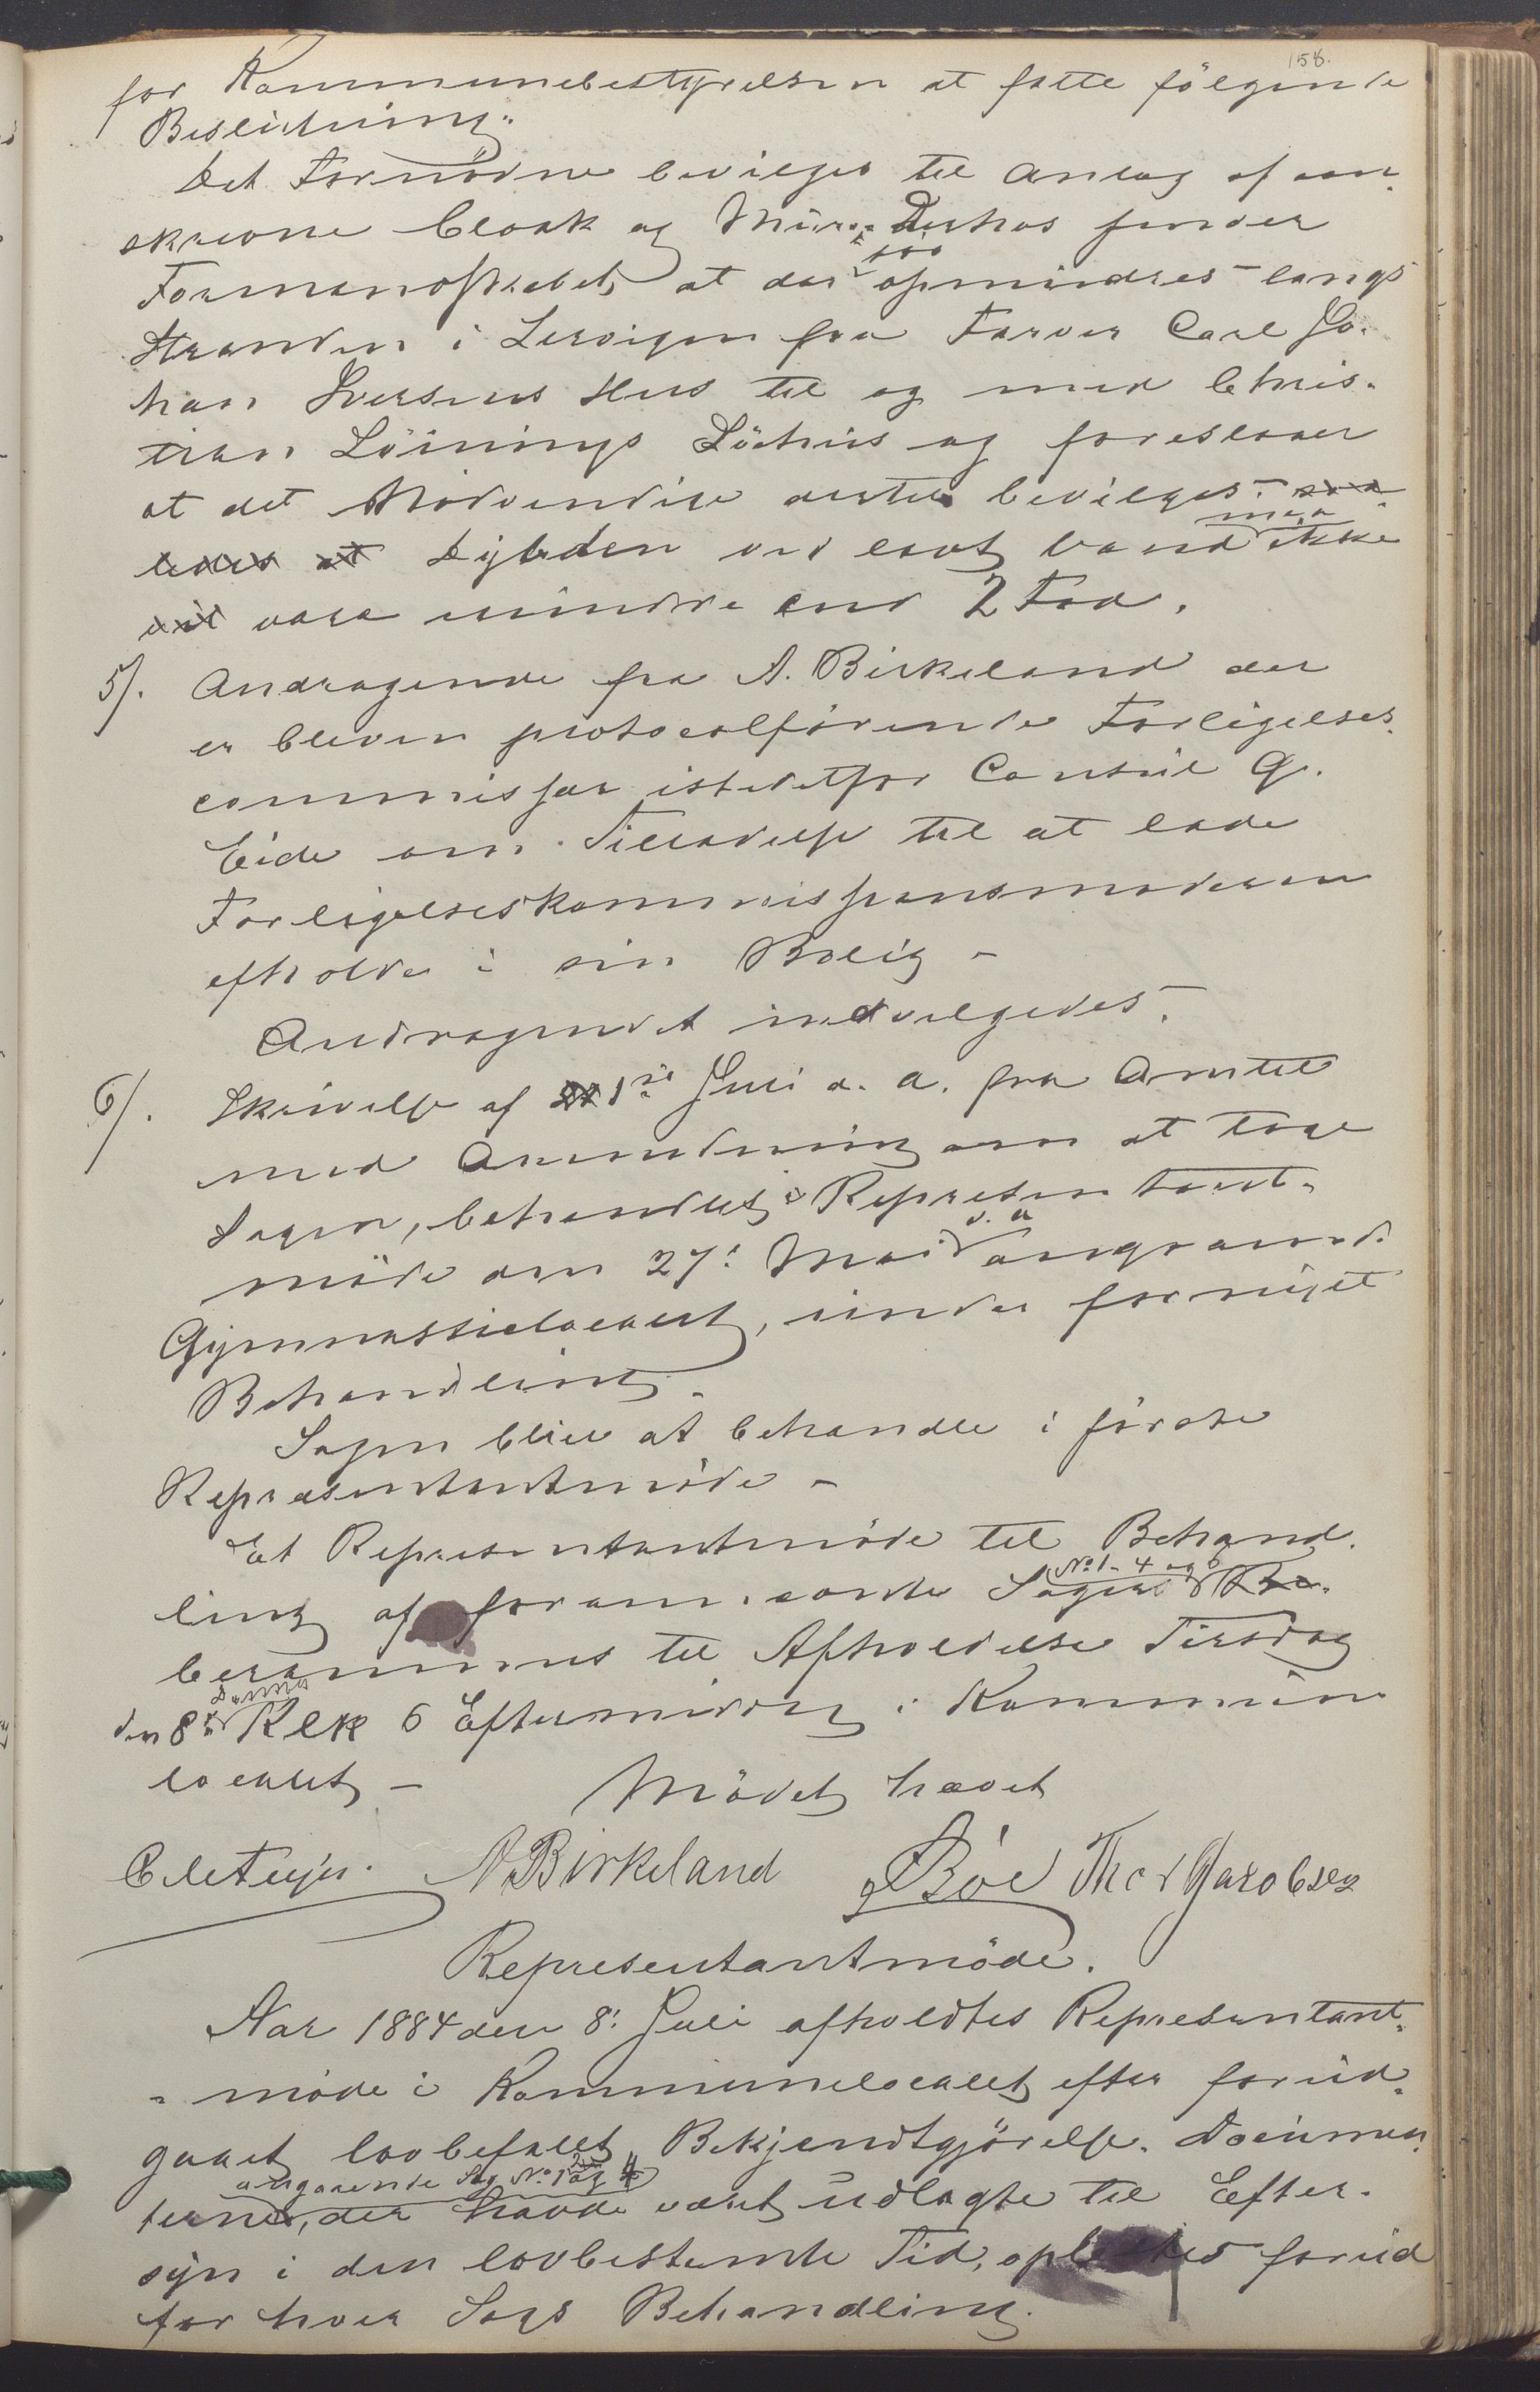 158.
for Kommunebestyrelsen at fatte fölgende
Beslutning:
Det Fornödne bevilges til Anlæg af oven-
skrevne Cloak og Mur. Derhos finder
Formandskabet, at der bör opmudres langs
Stranden i Lervigen fra Farver Carl Jo-
han Iversens Hus til og med Chris-
tian Löinings Söehus og foreslaaer
at det Nödvendige dertil bevilges. saa-
ledes at Dybden ved lavt Vand maa ikke
vil være mindre end 2 Fod.
5/. Andragende fra A. Birkeland der
er bleven protocolförende Forligelses-
commissær istedetfor Consul G.
Eide om Tilladelse til at lade
Forligelseskommissionsmöderne
afholde i sin Bolig –
Andragendet indvilgedes.
6/. Skrivelse af 1ste Juli d. a. fra Amtet
med Anmodning om at tage
Sagen, behandlet i Representant-
möde den 27: Mai d. a. angaaende
Gymnastiklocalet, under fornyet
Behandling.
Sagen bliver at behandle i förste
Repræsentantmöde –
Et Representantmöde til Behand-
ling af foranförte Sager No 1 - 4 og 6 Be-
berammes til Afholdelse Tirsdag
den 8de dennes Klk 6 Eftermiddag i Kommune
localet –
Mödet hævet
N Birkeland Böe Thor Jacobsen
Representantmöde.
Aar 1884 den 8: Juli afholdtes Representant-
- möde i Kommunelocalet efter forud-
gaaet lovbefalet Bekjendtgjörelse. Documen-
terne angaaende Sag No 1, 2 og 4, der havde været udlagte til Efter-
syn i den lovbestemte Tid, oplæstes forud
for hver Sags Behandling.